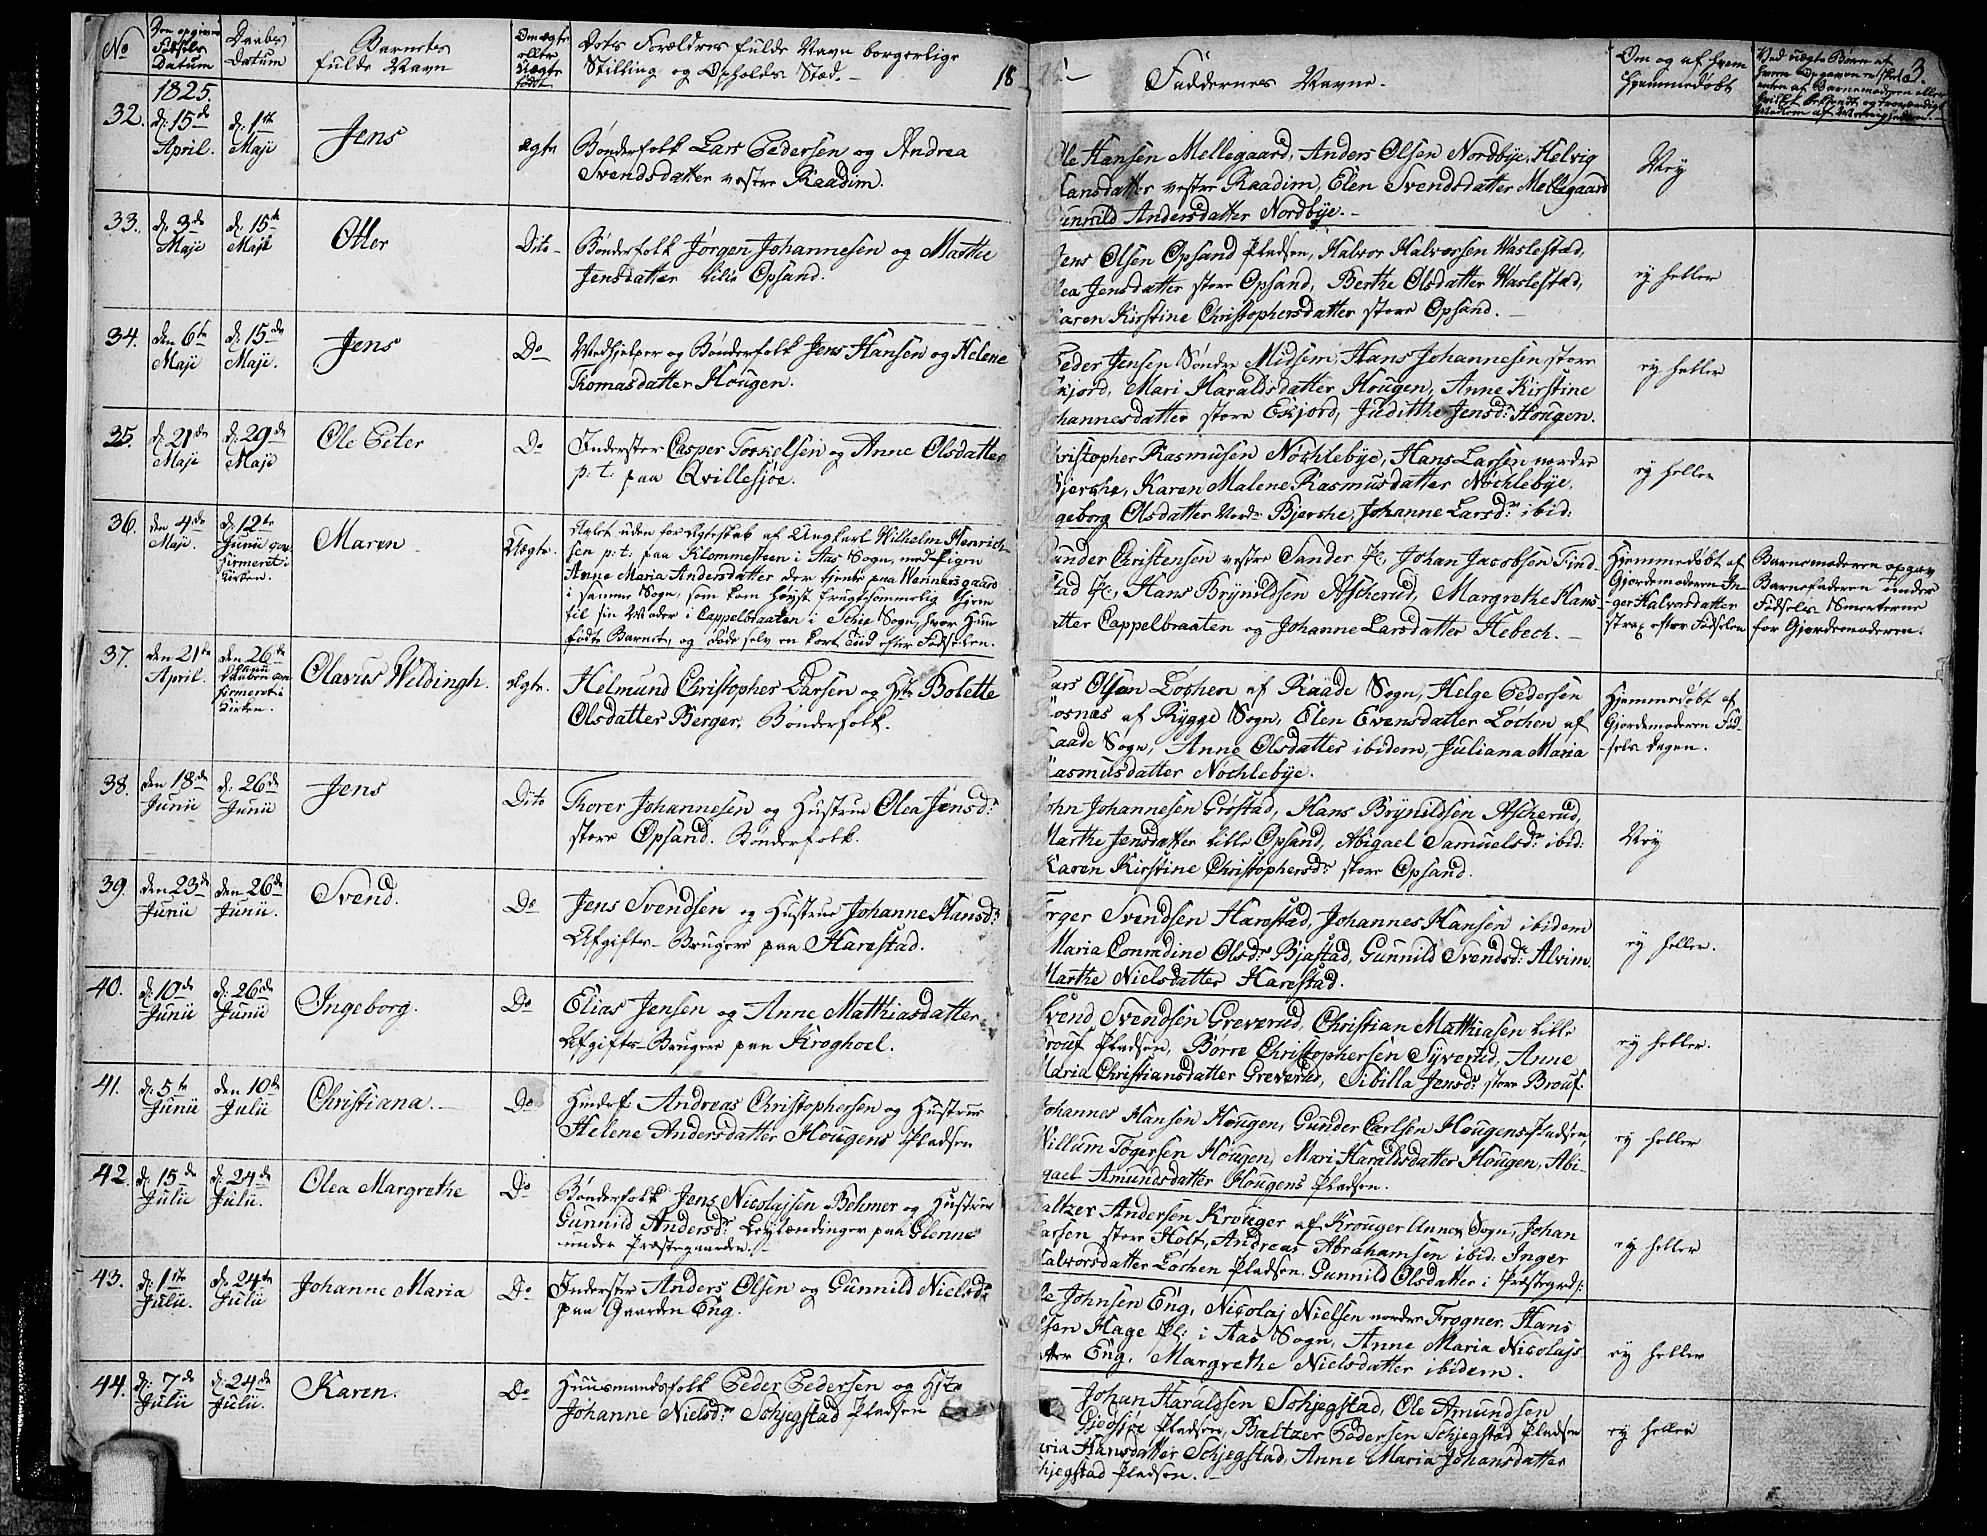 No
Den opgivne
Fødsels
Datum
Daabs
Datum
Barnets
fulde Navn
Om ægte
eller
Uægte
født
Dets Forældres fulde Navn borgerlige
Stilling og Opholds Sted. -
18
Faddernes Navne.
Om og af hvem
hjemmedøbt
3.
Ved uægte Børn af
hvem Opgaven er skeed
1825.
32.
d: 15de
April.
d: 1ste
Maji
Jens
ægte
Bønderfolk Lars Pedersen og Andrea
Svendsdatter vestre Raadim.
Ole Hansen Mellegaard, Anders Olsen Nordbye, Helvig
Hansdatter vestre Raadim, Elen Svendsdatter Mellegaard
Gunnild Andersdatter Nordbye. -
Ney
33.
d: 3de
Maji
d: 15de
Maji
Otter
Dito -
Bønderfolk Jørgen Johannesen og Marthe
Jensdatter lille Opsand.
Jens Olsen Opsand Pladsen, Halvor Halvorsen Haslestad,
Olea Jensdatter store Opsand, Berthe Olsdatter Haslestad,
Karen Kirstine Christophersdatter store Opsand. -
ey heller
34.
den 6te
Maji
d: 15de
Maji.
Jens
Do
Medhjelper og Bønderfolk Jens Hansen og Helene
Thomasdatter Hougen.
Peder Jensen Søndre Midsem, Hans Johannesen store
Eskjord, Mari Haraldsdatter Hougen, Anne Kirstine
Johannesdatter store Eskjord, Judithe Jensd: Hougen.
ey heller
35.
d: 21de
Maji
d: 29de
Maji
Ole Peter
Do
Inderster Casper Torkelsen og Anne Olsdatter
p: t: paa Qvillesjøe.
Christopher Rasmusen Nøchlebye, Hans Larsen nordre
Bjerche, Karen Malene Rasmusdatter Nøchlebye,
Ingeborg Olsdatter Nordr Bjerche, Johanne Larsdr ibid:
ey heller
36.
den 4de
Maji.
d: 12te
Junii con
firmeret i
Kirken.
Maren
Uægte.
Avlet uden for Ægteskab af Ungkarl Wilhelm Henrich-
sen p: t: paa Klommesteen i Aas Sogn, med Pigen
Anne Maria Andersdatter der tjente paa Wennersgaard
i samme Sogn, som kom høyst frugtsommelig hjem
til sin Moder i Cappelbraaten i Schie Sogn, hvor Hun
fødte Barnet, og døde selv en kort Tiid efter Fødselen.
Gunder Christensen vestre Sander Pl:, Johan Jacobsen Find-
stad Pl:, Hans Brynildsen Ascherud, Margrethe Hans-
datter Cappelbraaten og Johanne Larsdatter Hebech. -
Hjemmedøbt af
Gjordemoderen In-
ger Halvorsdatter
strax efter Fødselen
Barnemoderen opgav
Barnefaderen under
Fødsels Smerterne
for Gjordemoderen.
37.
den 21de
April.
den 26de
Junii
firmeret i
Kirken.
Olavus Weldingh.
ægte.
Helmund Christopher Larsen og Hstr Bolette
Olsdatter Berger, Bønderfolk.
Lars Olsen Løchen af Raade Sogn, Helge Pedersen
Rosnæs af Rygge Sogn, Elen Evensdatter Løchen af
Raade Sogn, Anne Olsdatter ibidem, Juliana Maria
Rasmusdatter Nøchlebye.
Hjemmedøbt af
Gjordemoderen Fød-
sels Dagen.
38.
den 18de
Junii
d: 26de
Junii
Jens
Dito
Thorer Johannesen og Hustrue Olea Jensd:
store Opsand. Bønderfolk.
John Johannesen Grøstad, Hans Brynildsen Ascherud,
Marthe Jensdatter lille Opsand, Abigael Samuelsdr ibid:
Karen Kirstine Christophersdr store Opsand.
Ney
39.
den 23de
Junii
den 26de
Junii.
Svend.
Do
Jens Svendsen og Hustrue Johanne Hansd:
Afgifts-Brugere paa Harestad.
Torger Svendsen Harestad, Johannes Hansen ibidem
Maria Conradine Olsdr Bjastad, Gunnild Svendsd: Alvim.
Marthe Nielsdatter Harestad.
ey heller.
40.
d: 10de
Junii
d: 26de
Junii
Ingeborg.
Do
Elias Jensen og Anne Mathiasdatter
Afgifts-Brugere paa Kroghoel.
Svend Svendsen Greverud, Christian Mathiasen lille
Brouf Pladsen, Børre Christophersen Syverud, Anne
Maria Christiansdatter Greverud, Sibilla Jensdr store Brouf.
ey heller.
41.
d: 5te
Junii
den 10de
Julii
Christiana. -
Do
Andreas Christophersen og Hustrue
Helene Andersdatter Hougens Pladsen
Johannes Hansen Hougen, Gunder Carlsen Hougens Pladsen,
Willum Togersen Hougen, Mari Haraldsdatter Hougen, Abi-
gael Amundsdatter Hougens Pladsen.
ey heller
42.
d: 15de
Julii
d: 24de
Julii.
Olea Margrethe
Do
Bønderfolk Jens Nicolajsen Behmer og Hustrue
Gunnild Andersdr Leylændinger paa Glenne
under Præstegaarden. -
Baltzer Andersen Krouger af Krouger Annex Sogn, Johan
Larsen store Holt, Andreas Abrahamsen ibid: Inger
Halvorsdatter Løchen Pladsen. Gunnild Olsdatter i Præstegrd:
ey heller
43.
d: 1ste
Julii.
d: 24de
Julii
Johanne Maria
Do
Inderster Anders Olsen og Gunnild Nielsdr
paa Gaarden Eng.
Ole Johnsen Eng, Nicolaj Nielsen nordre Frogner, Hans
Olsen Hage Pl: i Aas Sogn, Anne Maria Nicolajs
datter Eng, Margrethe Nielsdatter ibidem.
ey heller
44.
d: 7de
Julii
d: 24de
Julii.
Karen.
Do
Huusmandsfolk Peder Pedersen og Hstr
Johanne Nielsdr Schjegstad Pladsen
Johan Haraldsen Schjegstad, Ole Amundsen
Gjedsjøe Pladsen, Baltzer Pedersen Schjegstad Pladsen
Maria Hansdatter Schjegstad, Anne Maria Johansdatter
Schjegstad Pladsen. -
ey heller